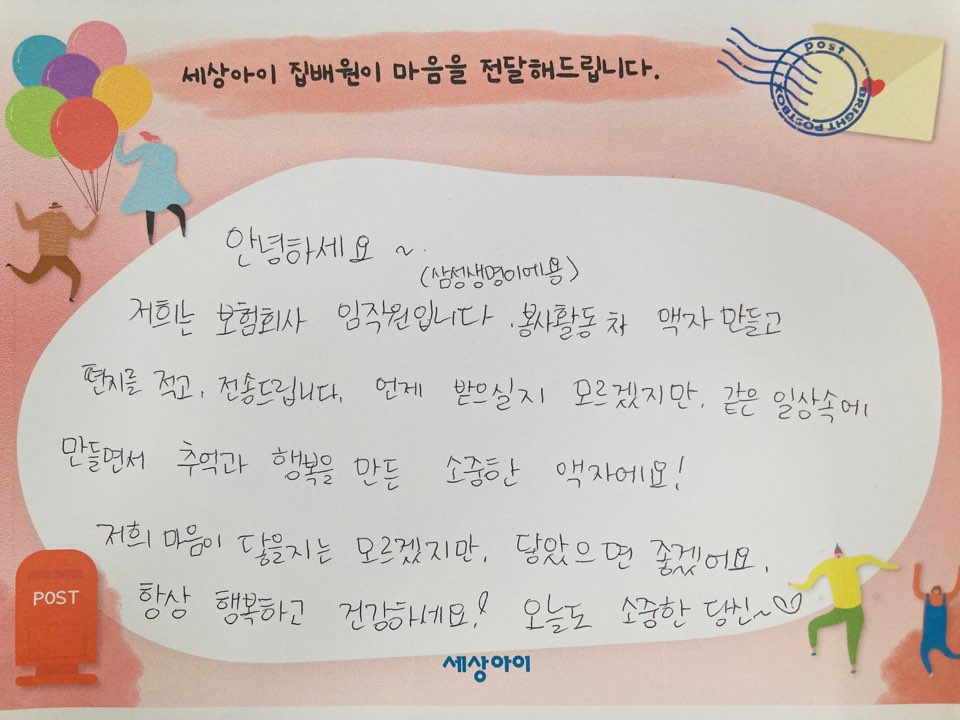 세상아이 집배원이 마음을 전달해드립니다.
post
BRIGHT POSTBOX
안녕하세요 ~.
(삼성생명이에용)
저희는 보험회사 임직원입니다. 봉사활동 차 액자 만들고
편지를 적고, 전송드립니다. 언제 받으실지 모르겠지만, 같은 일상속에
만들면서 추억과 행복을 만든 소중한 액자에요!
저희 마음이 닿을지는 모르겠지만, 닿았으면 좋겠어요.
항상 행복하고 건강하세요! 오늘도 소중한 당신~♡
POST
세상아이